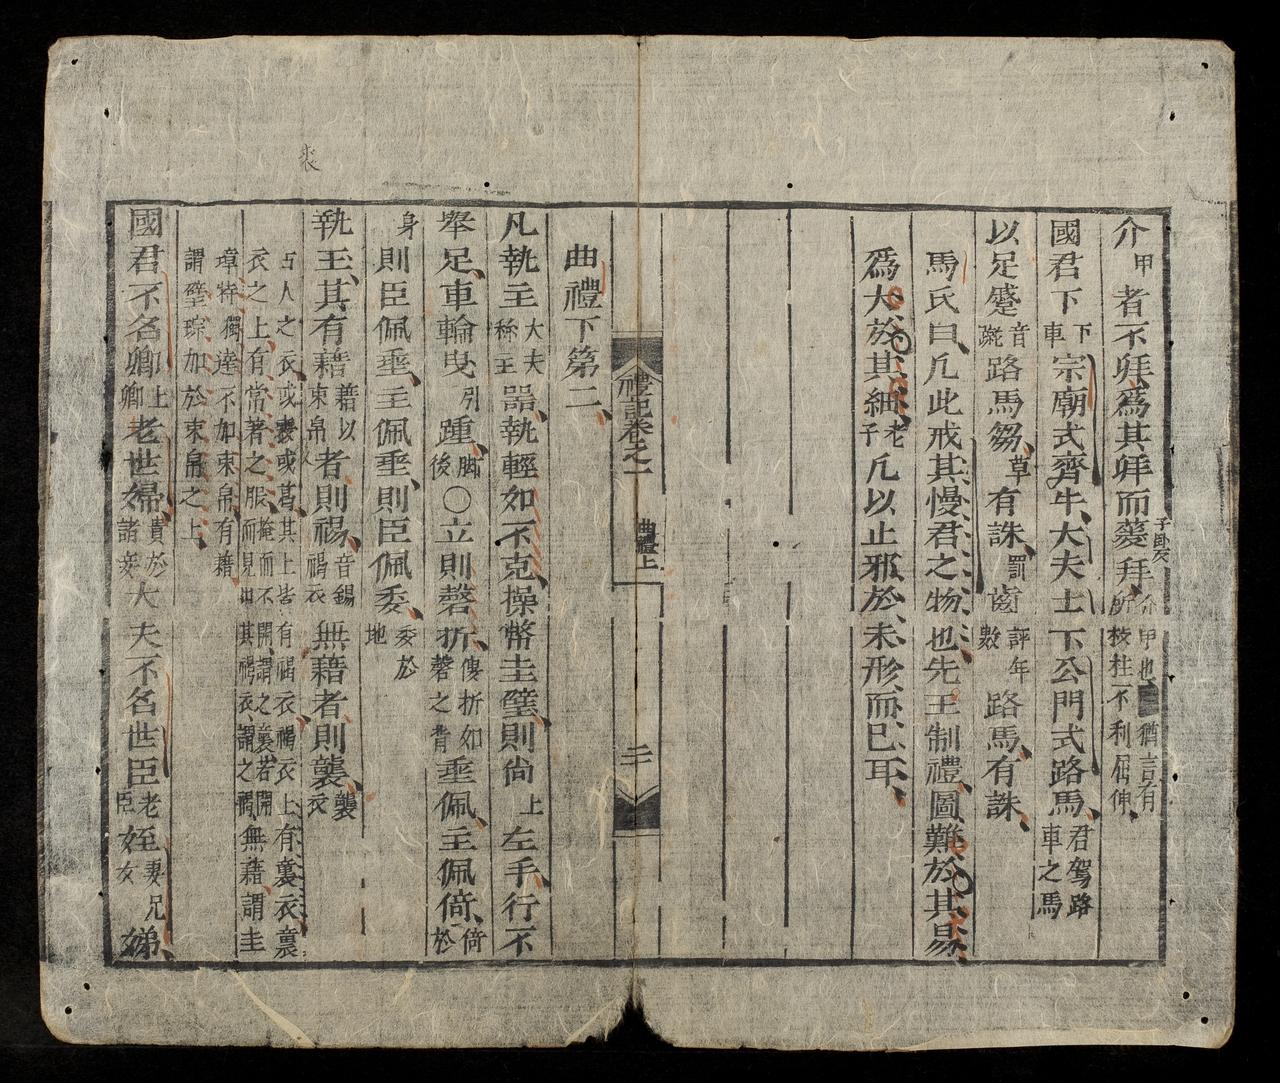 介甲者不拜爲其拜而蓌拜介甲也猶言有所枝柱不利屈伸
子卦反
國君下下車宗廟式齊牛大夫士下公門式路馬君駕路車之馬
以足蹙音蹴路馬芻草有誅罰齒評年數路馬有誅
馬氏曰凡此戒其慢君之物也先王制禮圖難於其易
爲大於其細老子凡以止邪於未形而已耳
禮記卷之一 曲禮上 二
曲禮下第二
凡執主大夫稱主器執輕如不克操幣圭璧則尚上左手行不
舉足車輪曳引踵脚後○立則磬折僂折如磬之背垂佩主佩倚倚於
身則臣佩垂主佩垂則臣佩委委於地
裘
執玉其有藉藉以束帛者則裼音錫裼衣無藉者則襲襲衣
古人之衣或裘或葛其上皆有裼衣裼衣上有裏衣裏
衣之上有常著之服掩而不開謂之襲若開而見出其裼衣謂之裼無藉謂圭
璋特獨達不加束帛有藉
謂璧琮加於束帛之上
國君不名卿上卿老世婦貴於諸妾大夫不名世臣老臣姪妻兄女娣